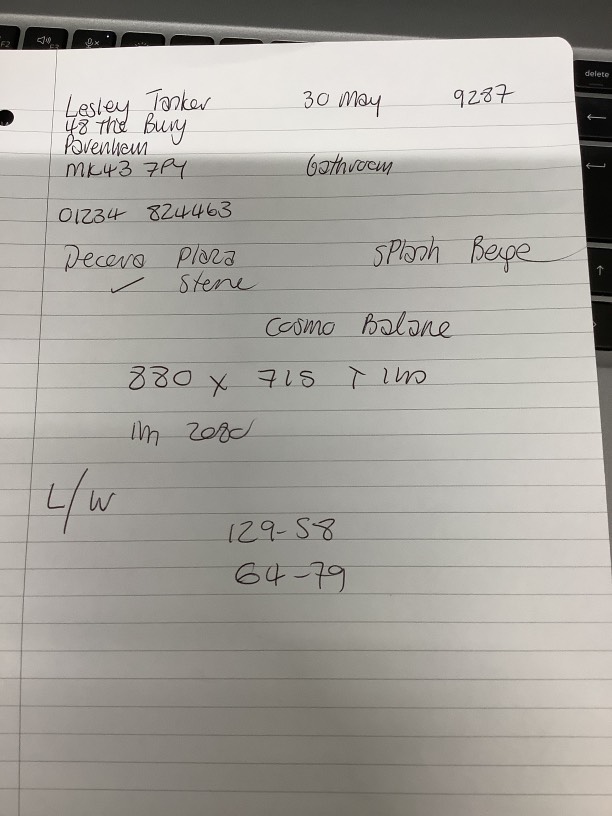 Lesley Tonker 30 May 9287
48 The Bury
Pavenham
MK43 7PY Bathroom
01234 824463
Decero Plaza Splash Beige
✓ Stene
Cosmo Balone
880 x 715
1m 2080
L/W
129-58
64-79